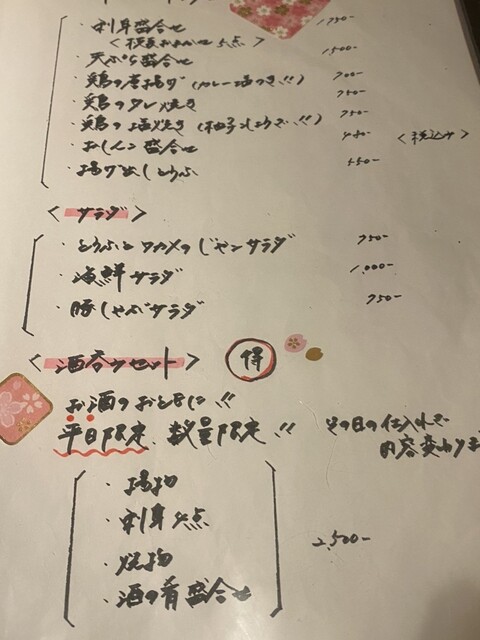 ・刺身盛合せ 1,750-
＜板長おまかせ5点＞
・天ぷら盛合せ 1,500-
・鶏の唐揚げ（カレー塩つき!!） 700-
・鶏のタレ焼き 750-
・鶏の塩焼き（柚子こしょうで!!） 750-
・おしんこ盛合せ 450- ＜税込み＞
・揚げ出しとうふ 550-
＜サラダ＞
・とうふとワカメのじゃこサラダ 750-
・海鮮サラダ 1,000-
・豚しゃぶサラダ 750-
＜酒呑みセット＞ 得
お酒のおともに!!
平日限定、数量限定!! その日の仕入れで
内容変わりま
・揚物
・刺身4点
・焼物 2,500-
・酒の肴盛合せ